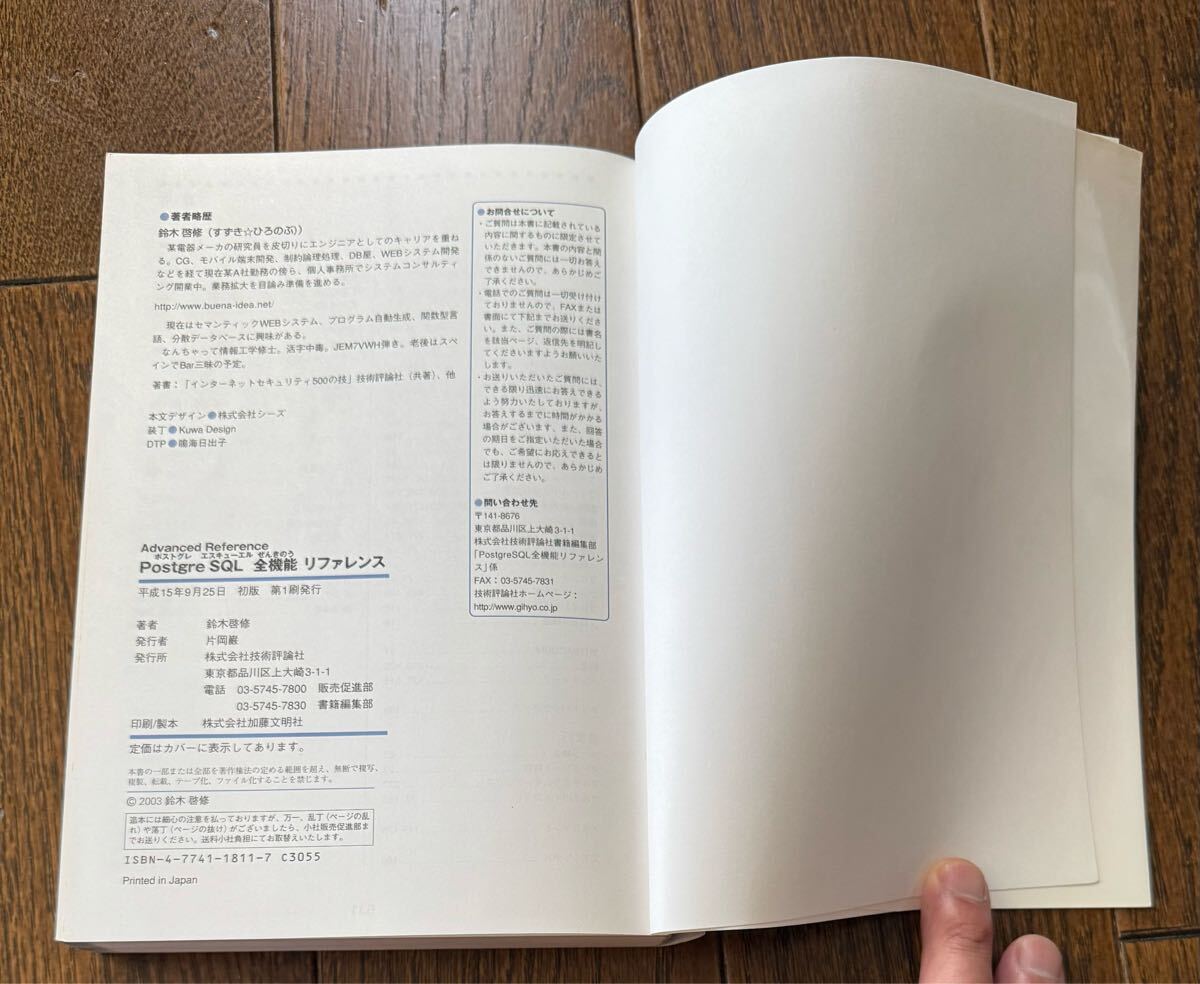 ●著者略歴
鈴木 啓修（すずき☆ひろのぶ））
某電器メーカの研究員を皮切りにエンジニアとしてのキャリアを重ね
る。CG、モバイル端末開発、制約論理処理、DB屋、WEBシステム開発
などを経て現在某A社勤務の傍ら、個人事務所でシステムコンサルティ
ング開業中。業務拡大を目論み準備を進める。
http://www.buena-idea.net/
現在はセマンティックWEBシステム、プログラム自動生成、関数型言
語、分散データベースに興味がある。
なんちゃって情報工学修士。活字中毒。JEM7VWH弾き。老後はスペ
インでBar三昧の予定。
著書：「インターネットセキュリティ500の技」技術評論社（共著）、他
本文デザイン●株式会社シーズ
装丁●Kuwa Design
DTP●鳴海日出子
Advanced Reference
ポストグレ エスキューエル ぜんきのう
Postgre SQL 全機能 リファレンス
平成15年9月25日 初版 第1刷発行
著者 鈴木啓修
発行者 片岡巌
発行所 株式会社技術評論社
東京都品川区上大崎3-1-1
電話 03-5745-7800 販売促進部
03-5745-7830 書籍編集部
印刷/製本 株式会社加藤文明社
定価はカバーに表示してあります。
本書の一部または全部を著作権法の定める範囲を超え、無断で複写、
複製、転載、テープ化、ファイル化することを禁じます。
© 2003 鈴木 啓修
造本には細心の注意を払っておりますが、万一、乱丁（ページの乱
れ）や落丁（ページの抜け）がございましたら、小社販売促進部ま
でお送りください。送料小社負担にてお取替えいたします。
ISBN-4-7741-1811-7 C3055
Printed in Japan
●お問合せについて
・ご質問は本書に記載されている
内容に関するものに限定させて
いただきます。本書の内容と関
係のないご質問には一切お答え
できませんので、あらかじめご
了承ください。
・電話でのご質問は一切受け付け
ておりませんので、FAXまたは
書面にて下記までお送りくださ
い。また、ご質問の際には書名
を該当ページ、返信先を明記し
てくださいますようお願いいた
します。
・お送りいただいたご質問には、
できる限り迅速にお答えできる
よう努力いたしておりますが、
お答えするまでに時間がかかる
場合がございます、また、回答
の期日をご指定いただいた場合
でも、ご希望にお応えできると
は限りませんので、あらかじめ
ご了承ください。
●問い合わせ先
〒141-8676
東京都品川区上大崎3-1-1
株式会社技術評論社書籍編集部
「PostgreSQL全機能リファレン
ス」係
FAX：03-5745-7831
技術評論社ホームページ：
http://www.gihyo.co.jp